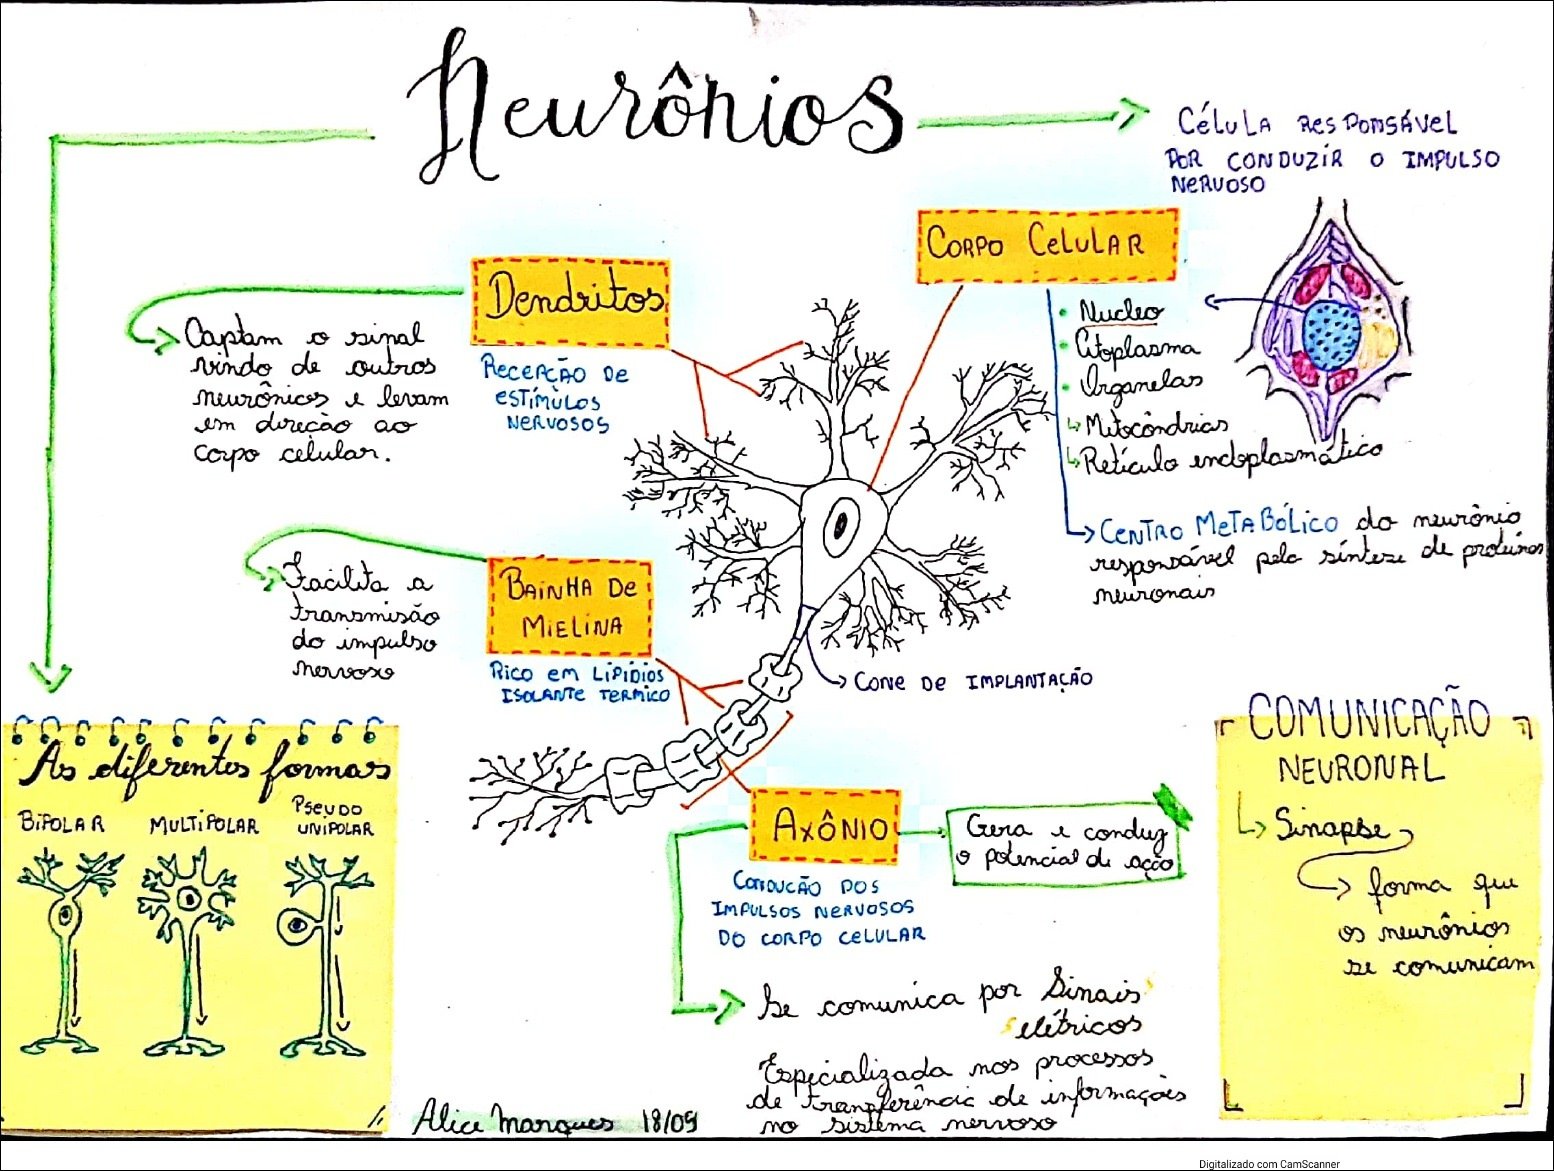 Neurônios
CÉLULA RESPONSÁVEL
POR CONDUZIR O IMPULSO
NERVOSO
CORPO CELULAR
Nucleo
Citoplasma
Organelas
Mitocôndrias
Retículo endoplasmático
CENTRO METABÓLICO do neurônio
responsável pela síntese de proteínas
neuronais
Dendritos
RECEPÇÃO DE
ESTÍMULOS
NERVOSOS
Captam o sinal
vindo de outros
neurônios e levam
em direção ao
corpo celular.
BAINHA DE
MIELINA
RICO EM LIPÍDIOS
ISOLANTE TERMICO
Facilita a
transmissão
do impulso
nervoso
CONE DE IMPLANTAÇÃO
As diferentes formas
BIPOLAR
MULTIPOLAR
PSEUDO
UNIPOLAR
AXÔNIO
Gera e conduz
o potencial de ação
CONDUCÃO DOS
IMPULSOS NERVOSOS
DO CORPO CELULAR
Se comunica por Sinais
elétricos
Especializada nos processos
de transferência de informações
no sistema nervoso
COMUNICAÇÃO
NEURONAL
Sinapse
forma que
os neurônios
se comunicam
Alice Marques 18/09
Digitalizado com CamScanner